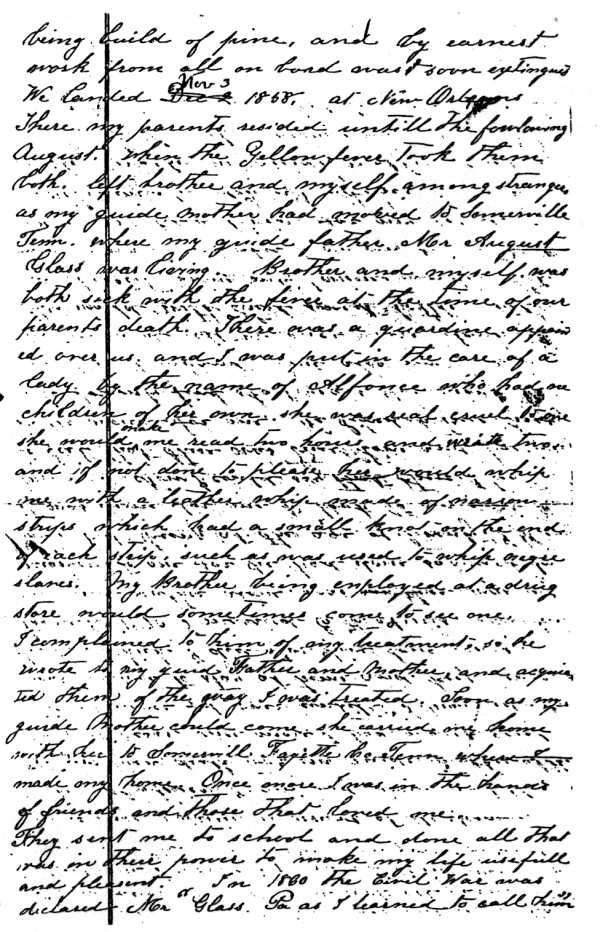 being build of pine, and by earnest
work from all on bord was soon extinguis
We landed Dec 2 Nov 3 1858. at New Orleans
There my parents resided untill the fowlowing
August. when the Yellow fever took them
both. left brother and myself among stranges
as my guide mother had moved to Somerville
Tenn. where my guide father Mr August
Glass was living. Brother and myself was
both sick with the fever at the time of our
parents death. There was a guardine appoin
ed over us. and I was put in the care of a
lady by the name of Alfonce who had no
children of her own she was real cruel to me
she would make me read two hours and write two
and if not done to please her would whip
me with a leather whip made of narrow
strips which had a small knot on the end
of each strip such as was used to whip negre
slaves. My Brother being employed at a drug
store would sometimes come to see me.
I complained to him of my treatment, so he
wrote to my guid Father and Mother and acquin
ted them of the way I was treated. Soon as my
guide Mother could come she carried me home
with her to Somervill Fayette Co. Tenn where I
made my home. Once more I was in the hands
of friends and those that loved me.
They sent me to school and done all that
was in their power to make my life usefull
and pleasent. In 1860 the Civil War was
declared Mr Glass. Pa as I learned to call him